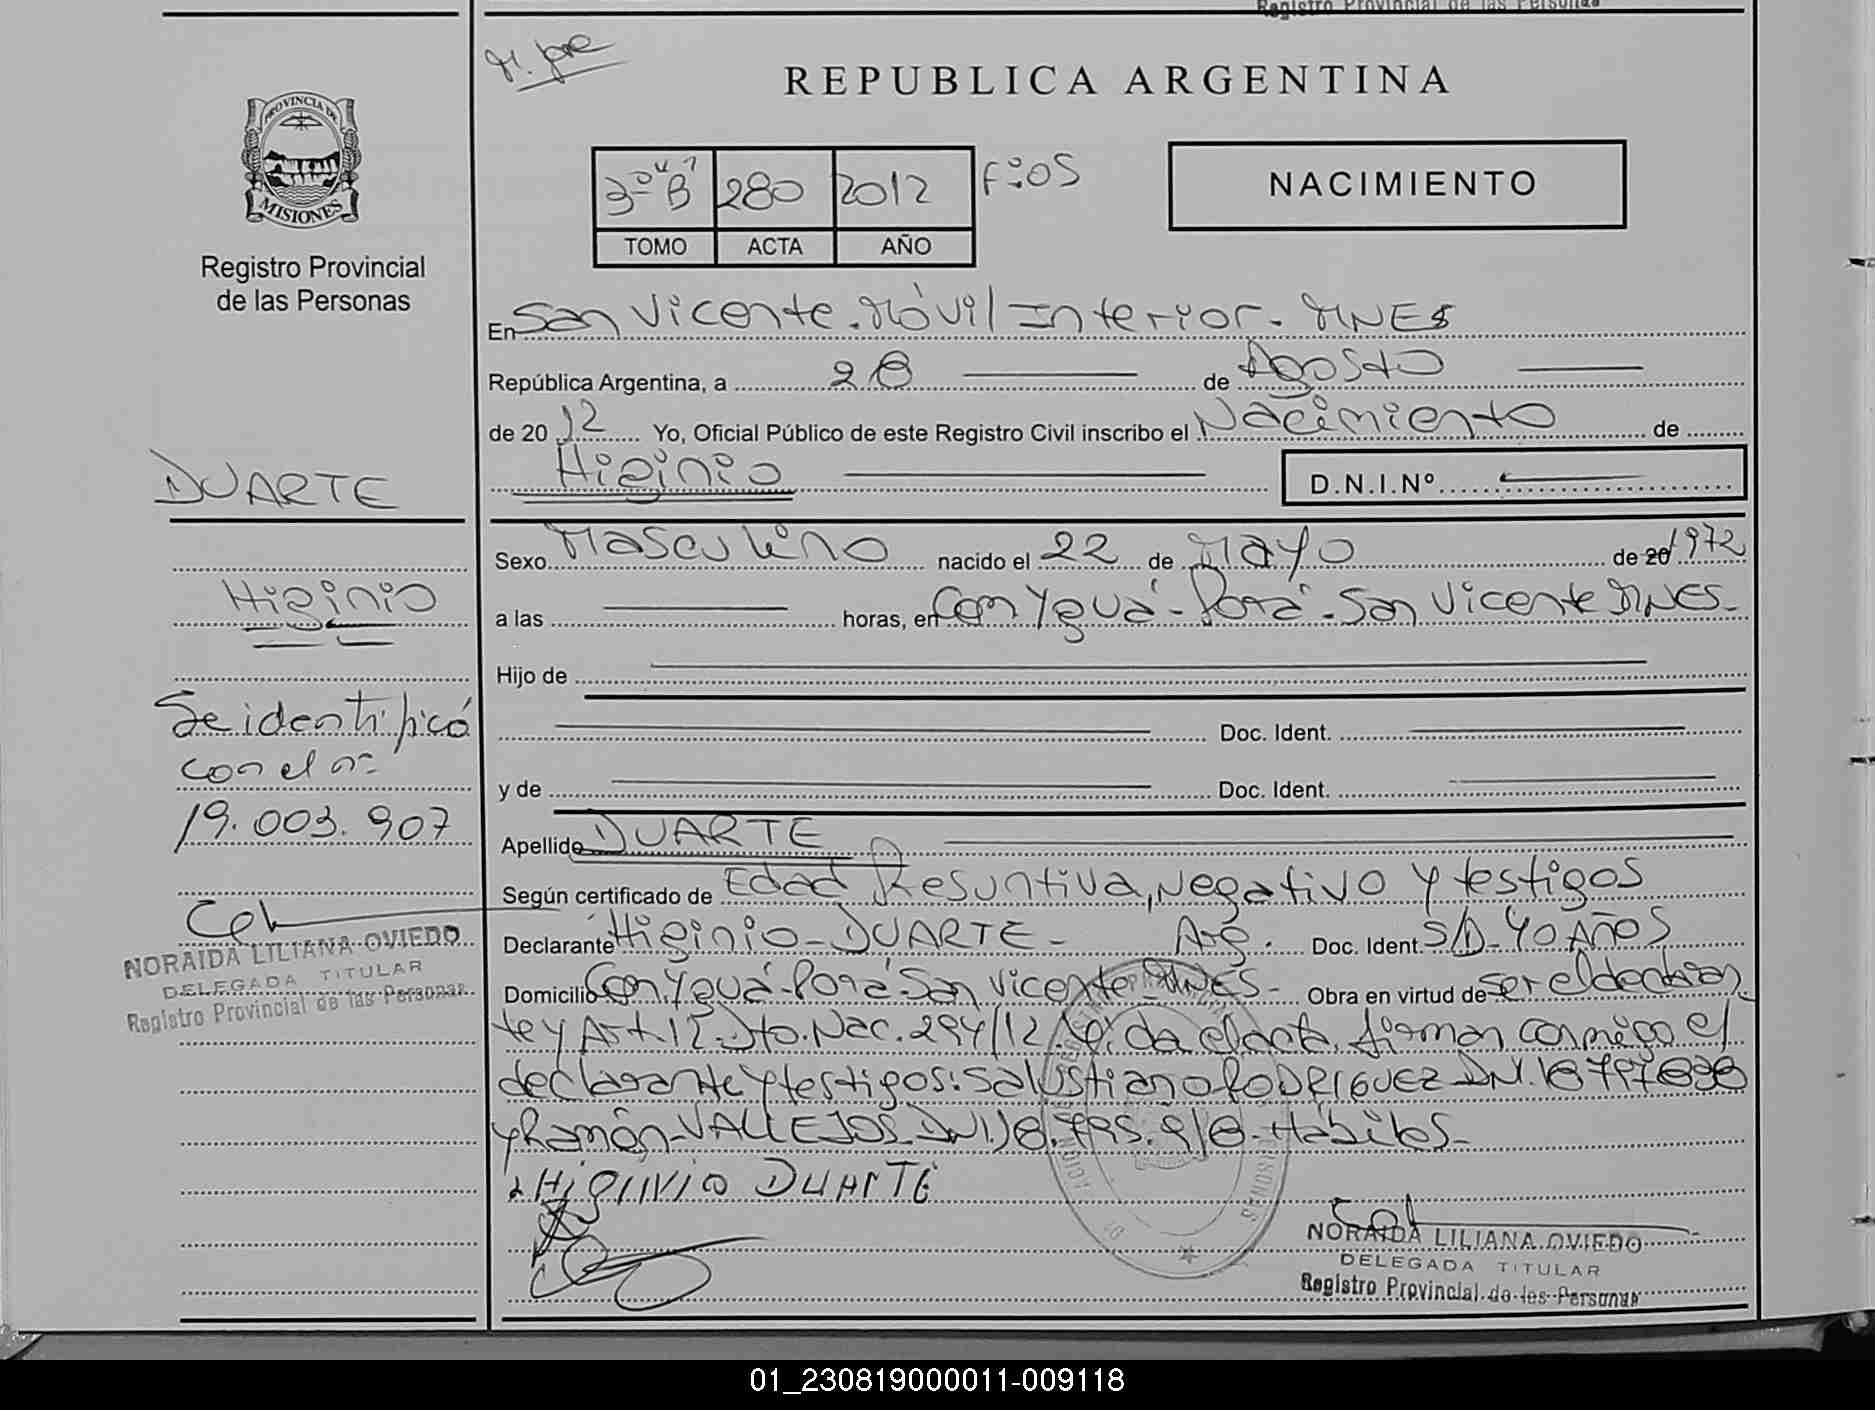 Registro Provincial de las Personas
REPUBLICA ARGENTINA
PROVINCIA DE
MISIONES
Registro Provincial
de las Personas
3º "B" 280 2012 Fº:05
TOMO ACTA AÑO
NACIMIENTO
En San Vicente. Móvil Interior. MNES
República Argentina, a 28 de Agosto
de 2012 Yo, Oficial Público de este Registro Civil inscribo el Nacimiento de
Higinio D.N.I.Nº
DUARTE
Sexo Masculino nacido el 22 de Mayo de 20 1972
Higinio
a las horas, en Con Yguá-Porá-San Vicente MNES-
Hijo de
Se identificó
Doc. Ident.
con el nº
y de Doc. Ident.
19.003.907
Apellido DUARTE
Según certificado de Edad Presuntiva, Negativo y testigos
Declarante Higinio-DUARTE- Arg. Doc. Ident. S/D-40 AÑOS
NORAIDA LILIANA OVIEDO
DELEGADA TITULAR
Registro Provincial de las Personas
Domicilio Con Yguá-Porá-San Vicente-MNES- Obra en virtud de ser el declaran
te y Art. 12 Dto. Nac. 294/12. da el acta, firman conmigo el
declarante y testigos: Salustiano RODRIGUEZ DNI. 18797838
y Ramón-VALLEJOS-DNI.18.795.918-Hábiles-
HiGiNio DUARTE
NORAIDA LILIANA OVIEDO
DELEGADA TITULAR
Registro Provincial de las Personas
01_230819000011-009118